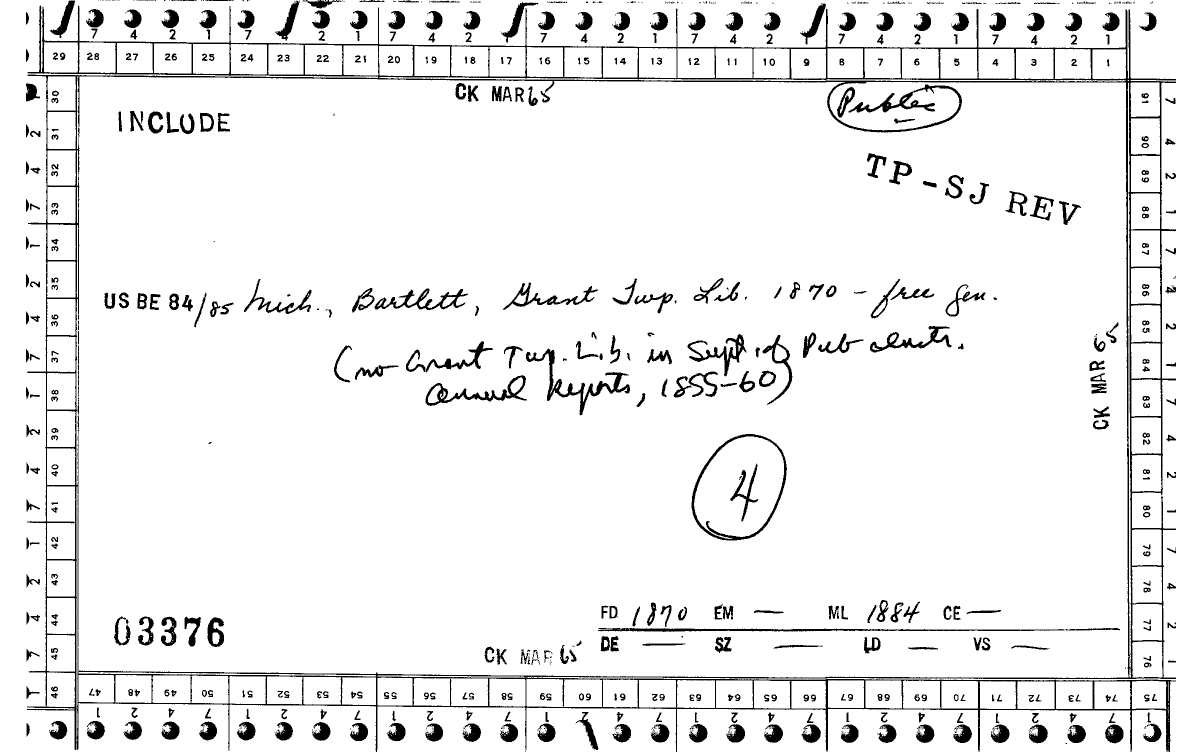 7 4 2 1 7 2 1 7 4 2 1 7 4 2 1 7 4 2 1 7 4 2 1 7 4 2 1
29 28 27 26 25 24 23 22 21 20 19 18 17 16 15 14 13 12 11 10 9 8 7 6 5 4 3 2 1
CK MAR 65
Public
INCLUDE
TP-SJ REV
US BE 84/85 Mich., Bartlett, Grant Twp. Lib. 1870 - free gen.
(no Grant Twp. Lib. in Supt. of Pub Instr.
Annual Reports, 1855-60)
CK MAR 65
4
FD 1870 EM — ML 1884 CE —
DE — SZ — LD — VS —
03376
CK MAR 65
30 31 32 33 34 35 36 37 38 39 40 41 42 43 44 45 46
91 90 89 88 87 86 85 84 83 82 81 80 79 78 77 76 75
47 48 49 50 51 52 53 54 55 56 57 58 59 60 61 62 63 64 65 66 67 68 69 70 71 72 73 74